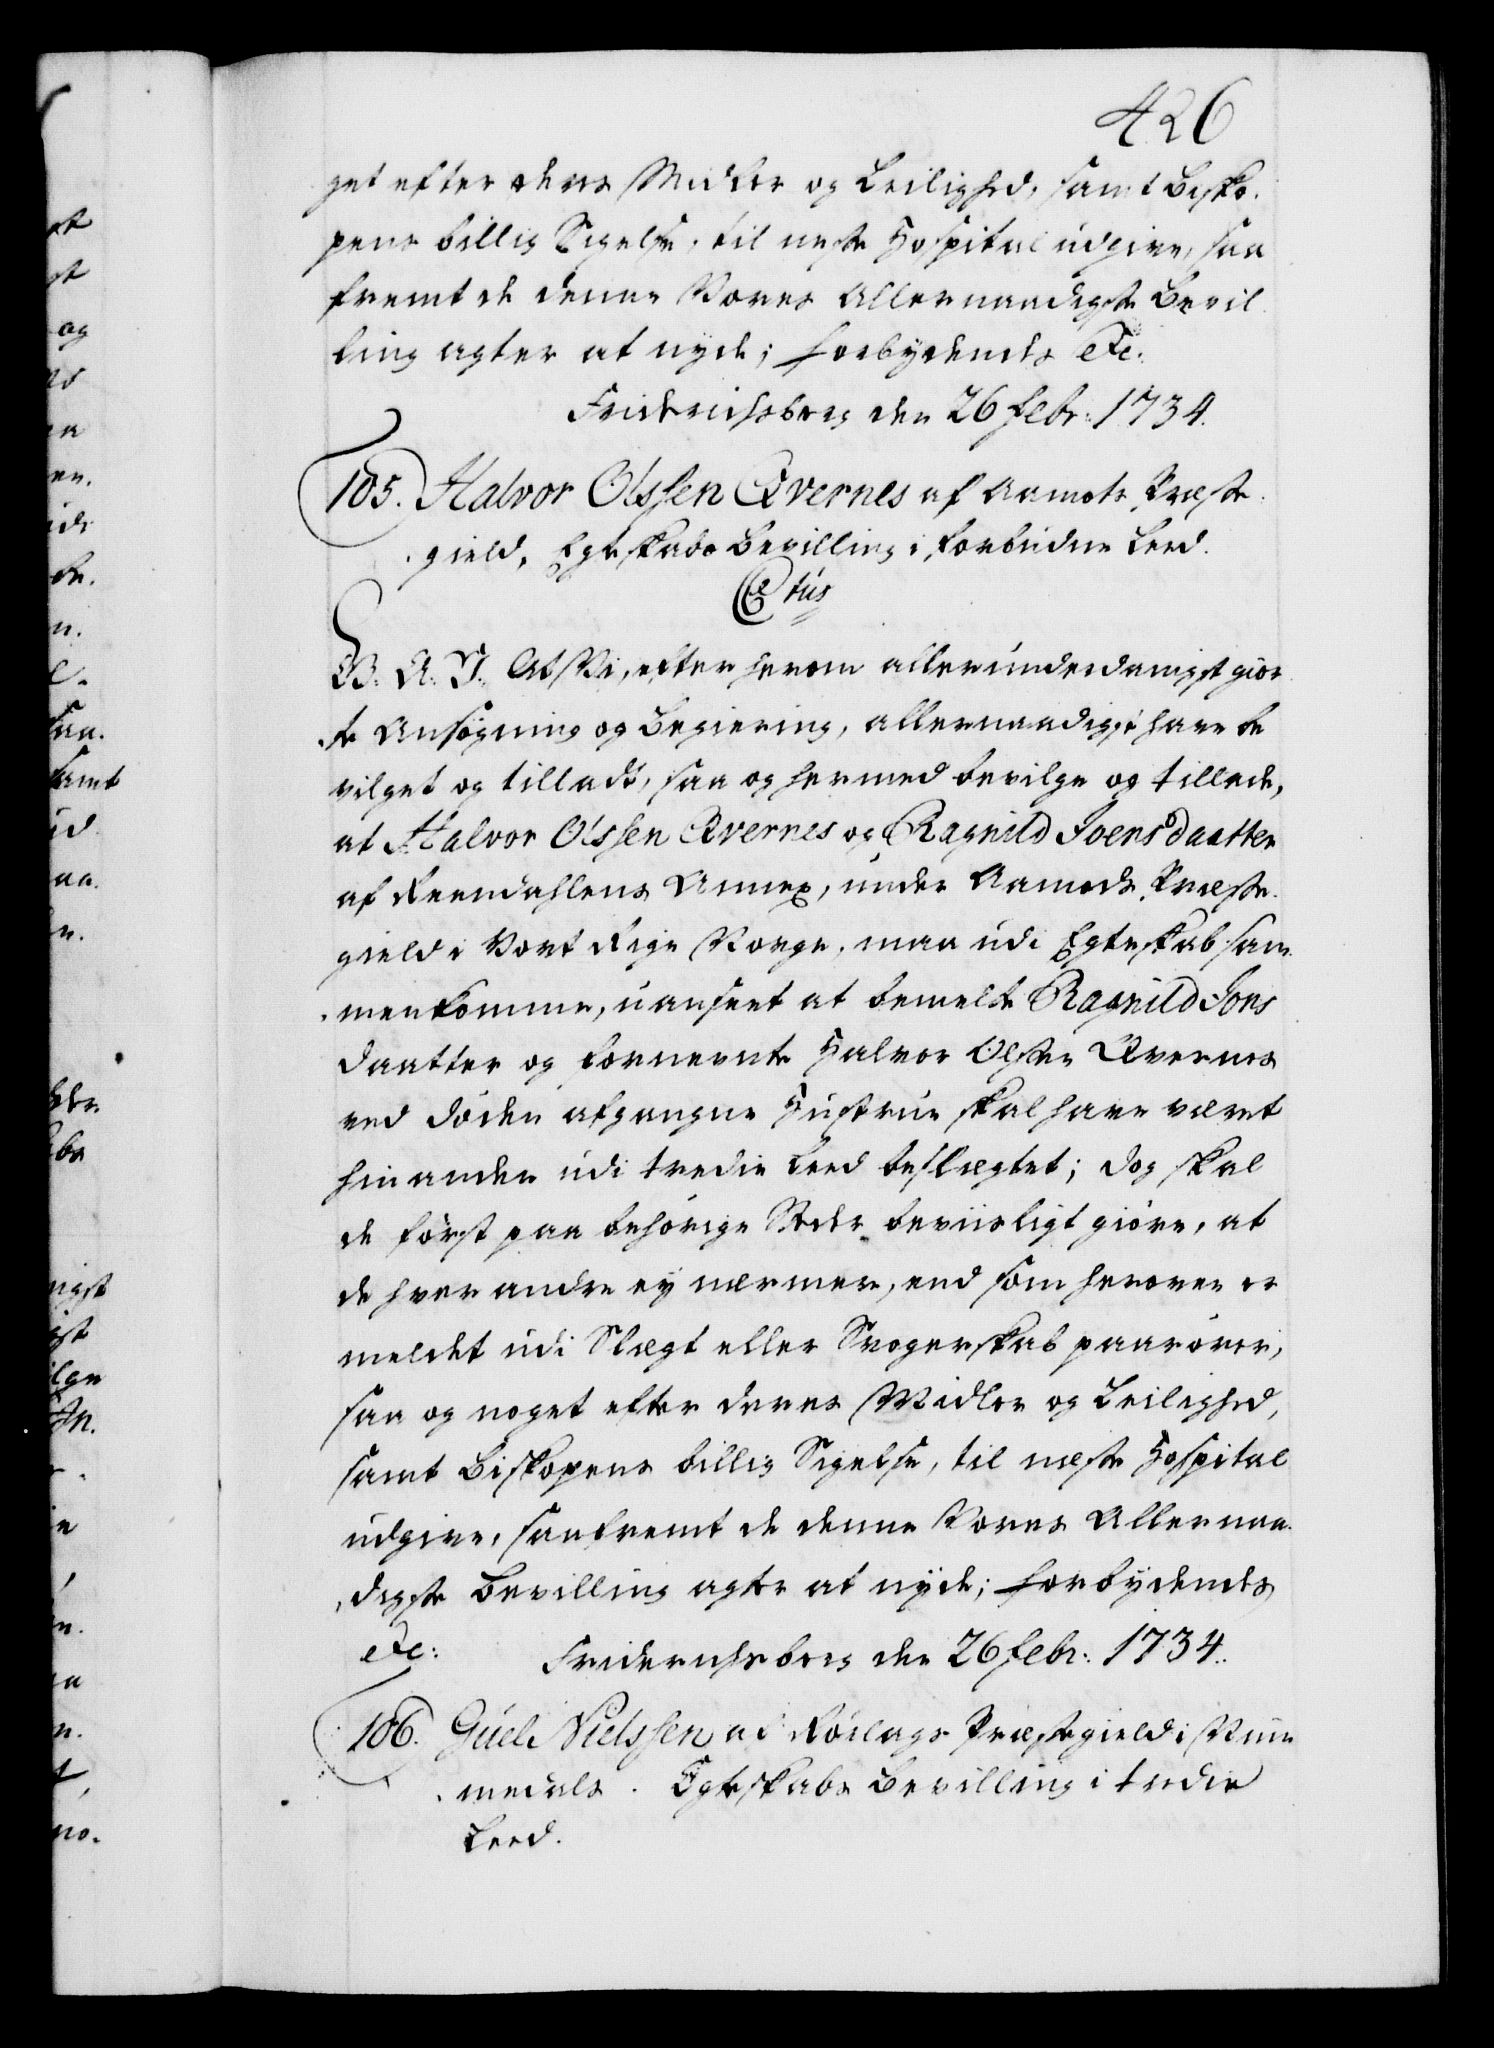 426
get efter deres Midler og Leilighed, samt Bisko-
pens billig Sigelse, til neste Hospital udgive, saa
fremt de denne Vores Allernaadigste Bevil-
ling agter at nyde; Forbydendes etc:
Friderichsberg den 26 Febr: 1734.
105. Halvor Olssen Qvernes af Aamots Præste-
gield, Egteskabs Bevilling i forbudne Leed.
C tus
G. A. V. At Vi, efter herom allerunderdanigst gior-
te Ansøgning og Begiering, allernaadigst have be
vilget og tilladt, saa og hermed bevilge og tillade,
at Halvor Olssen Qvernes og Ragnild Joensdaatter
af Reendahlens Annex, under Aamods Præste-
gield i Vort Rige Norge, maa udi Egteskab sam-
menkomme, uanseet at bemelte Ragnild Jons
daatter og fornevnte Halvor Olssen Qvernes
ved Døden afgangne Hustrue skal have været
hinanden udi tredie Leed beslægtet; dog skal
de først paa behørige Steder beviisligt giøre, at
de hver andre ey nærmere, end som herover er
meldet udi Slægt eller Svogerskab paarører,
saa og noget efter deres Midler og Leilighed,
samt Biskopens billig Sigelse, til næste Hospital
udgive, saafremt de denne Vores Allernaa-
digste Bevilling agter at nyde; Forbydendes
etc: Friderichsberg den 26 Febr: 1734.
106. Guel Nielssen af Præstegield i Num
medals. Egteskabs Bevilling i tredie
Leed.